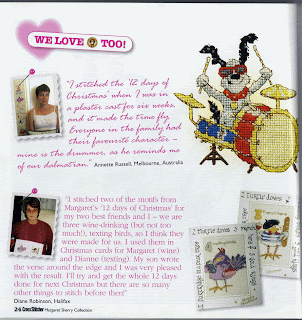 WE LOVE TOO!
"I stitched the '12 days of
Christmas' when I was in
a plaster cast for six weeks,
and it made the time fly.
Everyone in the family had
their favourite character –
mine is the drummer, as he reminds me
of our dalmatian." Annette Russell, Melbourne, Australia
"I stitched two of the motifs from
Margaret's '12 days of Christmas' for
my two best friends and I – we are
three wine-drinking (but not too
much!), texting birds, so I think they
were made for us. I used them in
Christmas cards for Margaret (wine)
and Dianne (texting). My son wrote
the verse around the edge and I was very
pleased with the result. I'll try and get the whole 12 days
done for next Christmas but there are so many
other things to stitch before then!"
Diane Robinson, Halifax
2 turtle doves
2 turtle doves
24 CrossStitcher Margaret Sherry Collection